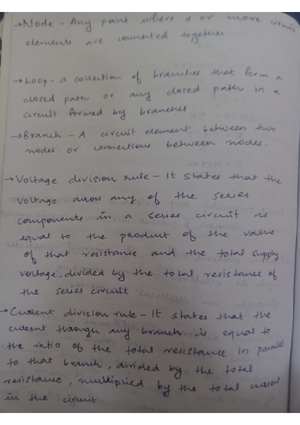 → Node - Any point where 2 or more circuit
elements are connected together
→ Loop - a collection of branches that form a
closed path or any closed path in a
circuit formed by branches.
→ Branch - A circuit element between two
nodes or connections between nodes.
→ Voltage division rule - It states that the
voltage across any of the series
components in a series circuit is
equal to the product of the value
of that resistance and the total supply
voltage, divided by the total resistance of
the series circuit.
→ Current division rule - It states that the
current through any branch is equal to
the ratio of the total resistance in parallel
to that branch, divided by the total
resistance, multiplied by the total current
in the circuit.